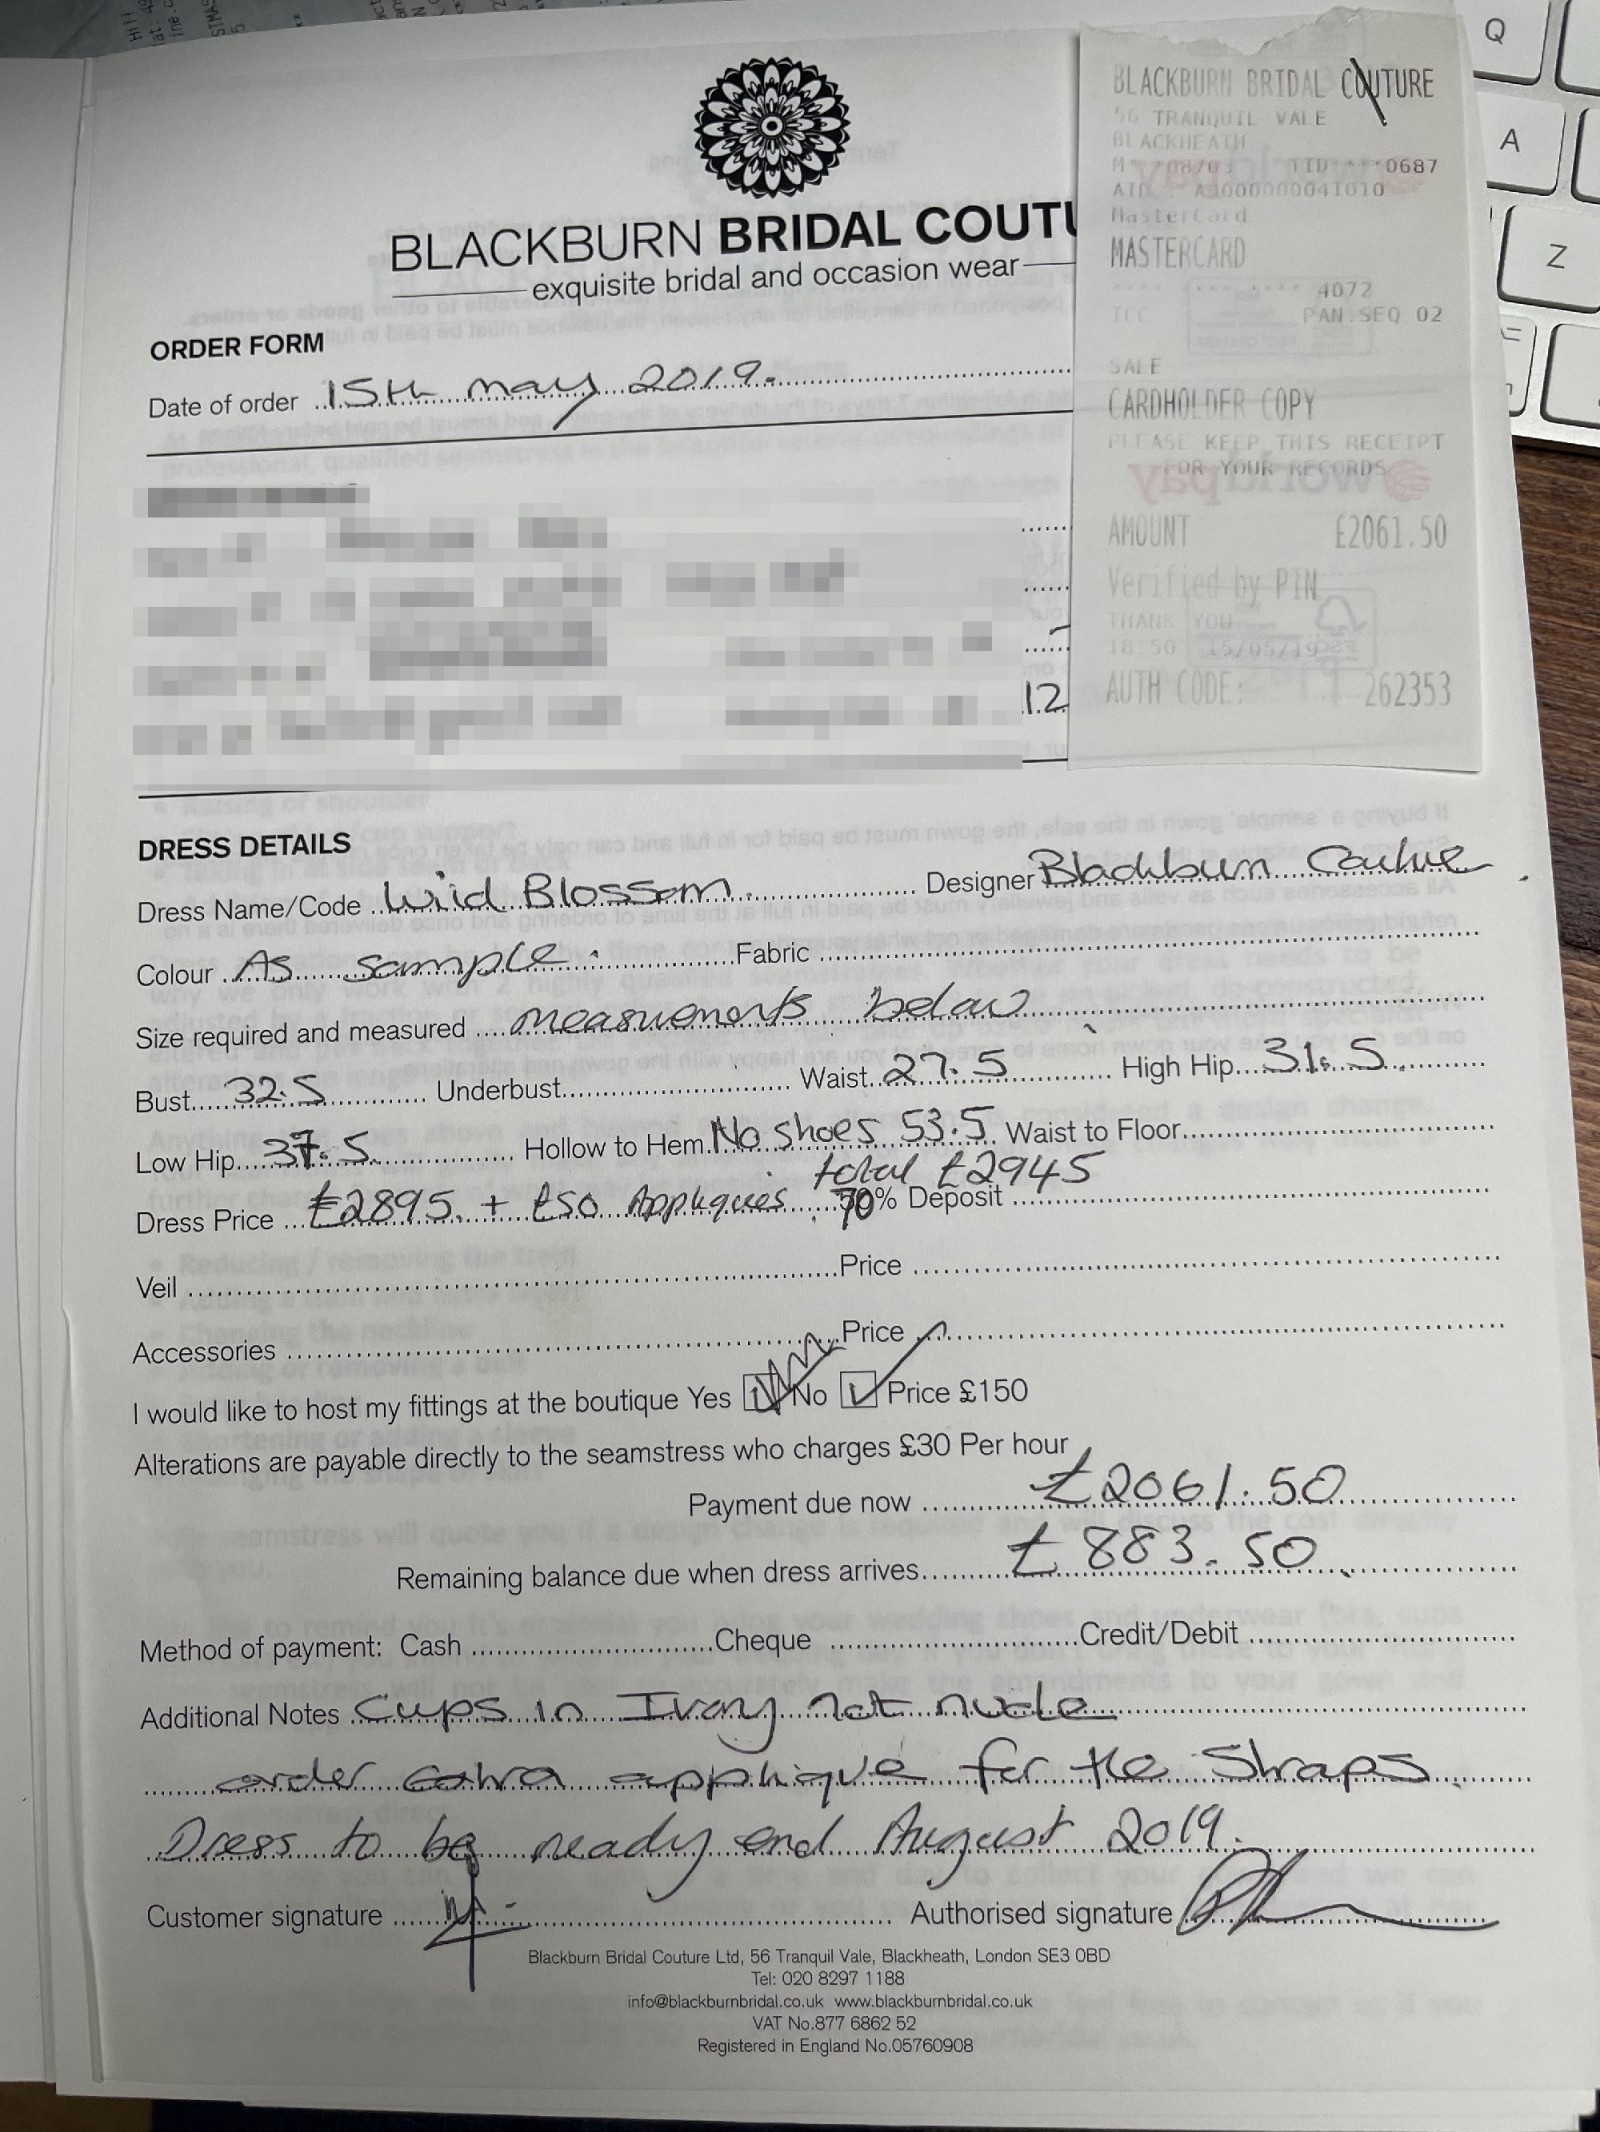 BLACKBURN BRIDAL COUTU
exquisite bridal and occasion wear
ORDER FORM
Date of order 15th may 2019.
BLACKBURN BRIDAL COUTURE
56 TRANQUIL VALE
BLACKHEATH
TID ****0687
AID : A0000000041010
MasterCard
MASTERCARD
**** **** **** 4072
ICC PAN.SEQ 02
SALE
CARDHOLDER COPY
PLEASE KEEP THIS RECEIPT
FOR YOUR RECORDS
AMOUNT £2061.50
Verified by PIN
THANK YOU
18:50 15/05/19
AUTH CODE: 262353
12
DRESS DETAILS
Dress Name/Code Wild Blossom. Designer Blackburn Couture
Colour As sample. Fabric
Size required and measured measurements below
Bust 32.5 Underbust Waist 27.5 High Hip 31.5
Low Hip 37.5 Hollow to Hem No shoes 53.5 Waist to Floor
total £2945
Dress Price £2895. + £50 Appliques. 70% Deposit
Veil Price
Accessories Price
I would like to host my fittings at the boutique Yes No Price £150
Alterations are payable directly to the seamstress who charges £30 Per hour
Payment due now £2061.50
Remaining balance due when dress arrives £883.50
Method of payment: Cash Cheque Credit/Debit
Additional Notes Cups in Ivory not nude
order extra applique for the Straps.
Dress to be ready end August 2019.
Customer signature Authorised signature
Blackburn Bridal Couture Ltd, 56 Tranquil Vale, Blackheath, London SE3 0BD
Tel: 020 8297 1188
info@blackburnbridal.co.uk www.blackburnbridal.co.uk
VAT No.877 6862 52
Registered in England No.05760908